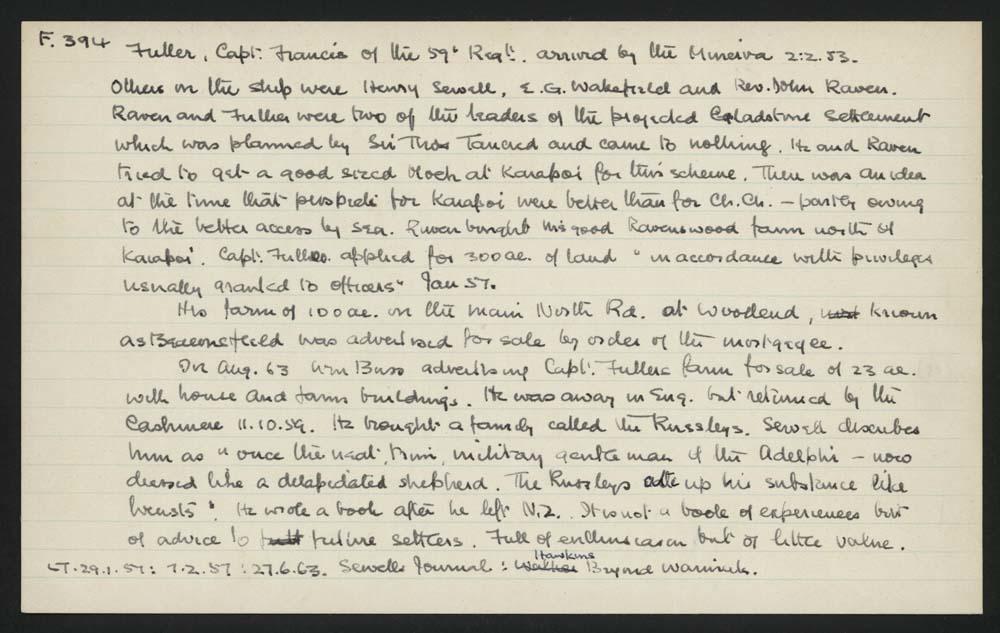 F. 394
Fuller, Capt. Francis of the 59th Regt. arrived by the Minerva 2.2.53.
Others on the ship were Henry Sewell, E.G. Wakefield and Rev. John Raven.
Raven and Fuller were two of the leaders of the projected Gladstone Settlement
which was planned by Sir Thos Tancred and came to nothing. He and Raven
tried to get a good sized block at Kaiapoi for this scheme. There was an idea
at the time that prospects for Kaiapoi were better than for Ch.Ch. – partly owing
to the better access by sea. Raven bought his good Ravenswood farm north of
Kaiapoi. Capt. Fuller applied for 300 ac. of land "in accordance with privileges
usually granted to officers" Jan 57.
His farm of 100 ac. on the main North Rd. at Woodend, known
as Beaconsfield was advertised for sale by order of the mortgagee.
In Aug. 63 Wm Buss advertising Capt. Fullers farm for sale of 23 ac.
with house and farm buildings. He was away in Eng. but returned by the
Cashmere 11.10.59. He brought a family called the Russleys. Sewell describes
him as "once the neat, trim, military gentleman of the Adelphi – now
dressed like a delapidated shepherd. The Russleys ate up his substance like
locusts". He wrote a book after he left N.Z. It is not a book of experiences but
of advice to future settlers. Full of enthusiasm but of little value.
LT. 29.1.57: 7.2.57: 27.6.63. Sewells Journal: Hawkins Beyond Waimak.